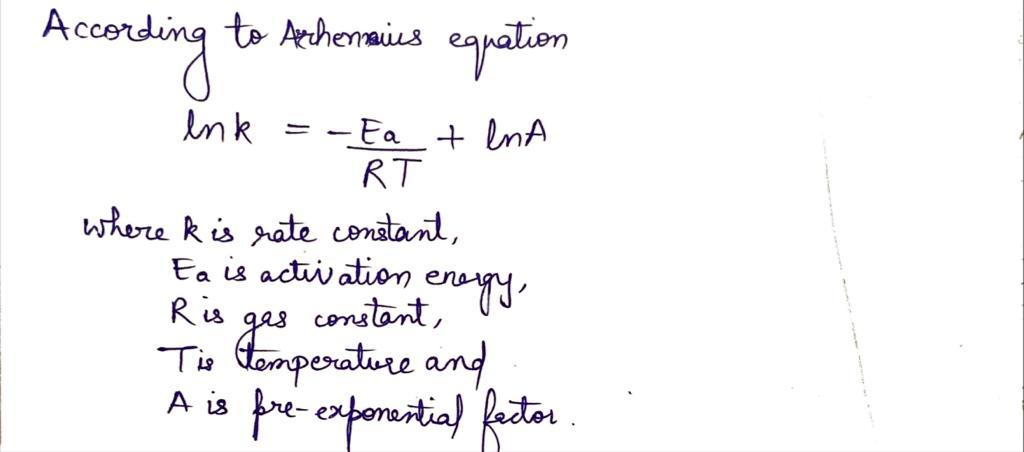 According to Arhennius equation
ln k = -Ea/RT + lnA
where k is rate constant,
Ea is activation energy,
R is gas constant,
T is temperature and
A is pre-exponential factor.